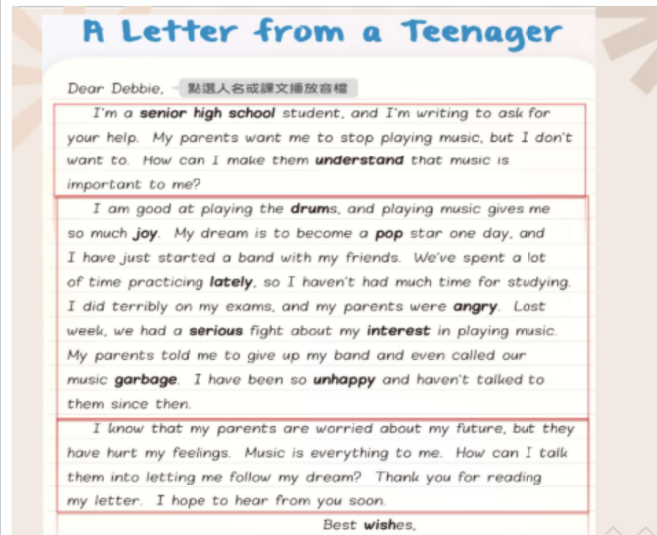 A Letter from a Teenager
Dear Debbie, 點選人名或課文播放音檔
I'm a senior high school student, and I'm writing to ask for
your help. My parents want me to stop playing music, but I don't
want to. How can I make them understand that music is
important to me?
I am good at playing the drums, and playing music gives me
so much joy. My dream is to become a pop star one day, and
I have just started a band with my friends. We've spent a lot
of time practicing lately, so I haven't had much time for studying.
I did terribly on my exams, and my parents were angry. Last
week, we had a serious fight about my interest in playing music.
My parents told me to give up my band and even called our
music garbage. I have been so unhappy and haven't talked to
them since then.
I know that my parents are worried about my future, but they
have hurt my feelings. Music is everything to me. How can I talk
them into letting me follow my dream? Thank you for reading
my letter. I hope to hear from you soon.
Best wishes,